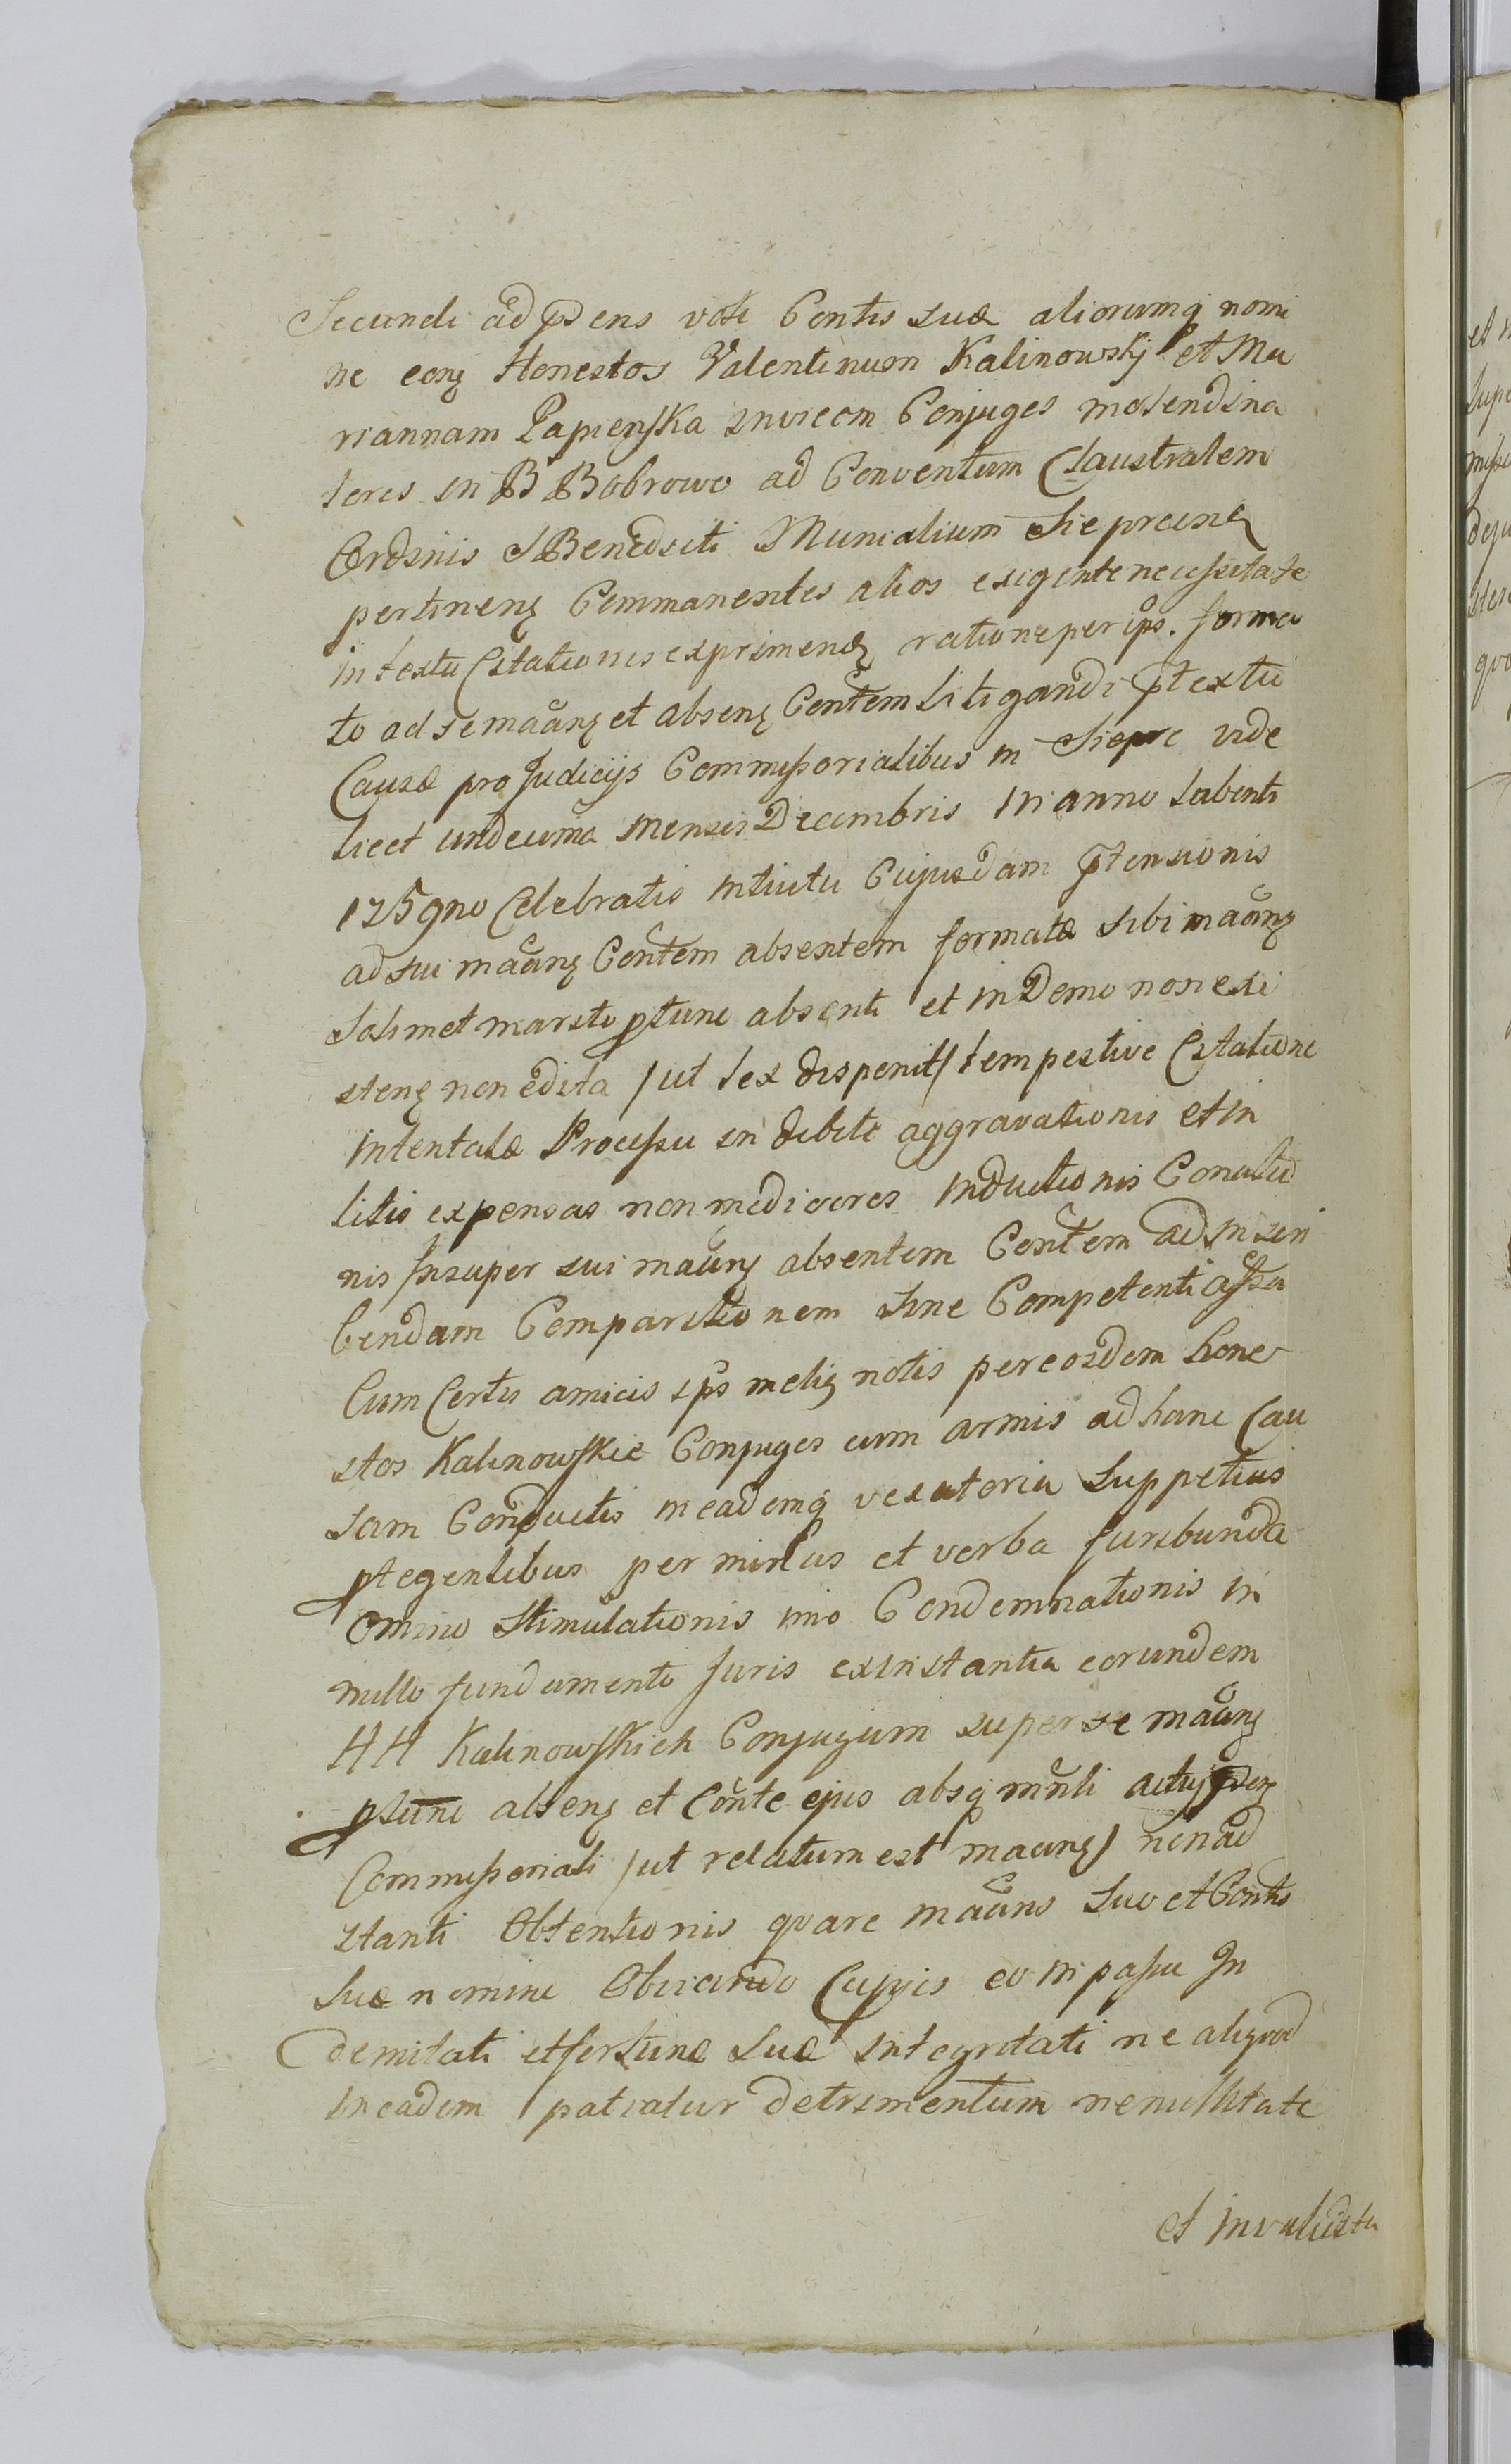 Secundi ad pns voti Contis suæ aliorumq nomi
ne eorꝫ Honestos Valentinum Kalinowskj et Ma
riannam Papienska invicem Conjuges molendina
tores in B Bobrowo ad Conventum Claustralem
Ordinis S Benedicti Munialium Sieprcens
pertinenꝫ Commanentes alios exigente necessitate
in textu Citationis exprimendꝫ ratione per ips. forma
to ad se maãnꝫ et absenꝫ Contem Litigandi ptextu
Causæ pro Judicijs Commissorialibus in Sieprc vide
licet undecima mensis Decembris in anno labenti
1759no Celebratis intuitu Cujusdam ptensionis
ad sui maãnꝫ Contem absentem formatæ sibi maãnꝫ
Solimet marito ptunc absenti et in Domo non exi
stenꝫ non edita /ut lex disponit/ tempestive Citatione
intentatæ Processu indebite aggravationis et in
litis expensas non mediocres inductionis Conatu
nis Insuper sui maãnꝫ absentem Contem ad inscri
bendam Comparitionem sine Competenti assa
Cum Certis amicis ips meliꝫ notis per eosdem hone
stos Kalinowskie Conjuges cum armis ad hanc Cau
sam Conductis in eademq vexatoria Suppetias
ptegentibus per minas et verba furibunda
omnino Stimulationis imo Condemnationis in
nullo fundamento Juris ex instantia eorundem
HH Kalinowskich Conjugum super se maãnꝫ
ptunc absenꝫ et Conte ejus absq mnli actuj
Commissoriali /ut relatum est maanꝫ/ non ad
stanti Obtentionis quare maãns suo et Contis
suæ nomine Obviando Cupis eo in passu In
demitati et fortunæ suæ integritati ne aliquod
in eadem patiatur detrimentum ne nullitate
et invalidita